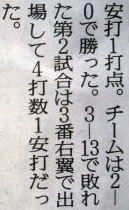 安打1打点。チームは2―
0で勝った。3―13で敗れ
た第2試合は3番右翼で出
場して4打数1安打だっ
た。